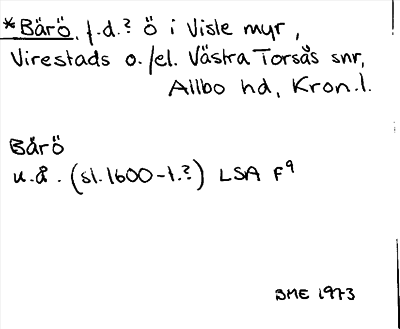 *Bårö, f.d.? ö i Visle myr,
Virestads o./el. Västra Torsås snr,
Allbo hd, Kron.l.
Bårö
u.å. (sl.1600-t.?) LSA F9
BME 1973